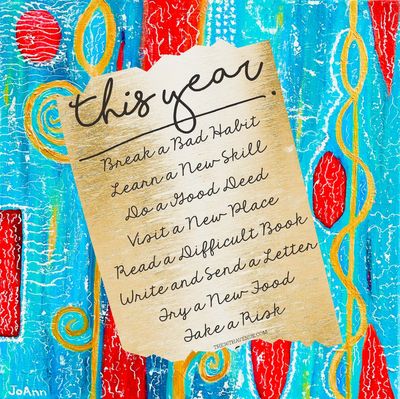 this year.
Break a Bad Habit
Learn a New Skill
Do a Good Deed
Visit a New Place
Read a Difficult Book
Write and Send a Letter
Try a New Food
Take a Risk
JoAnn